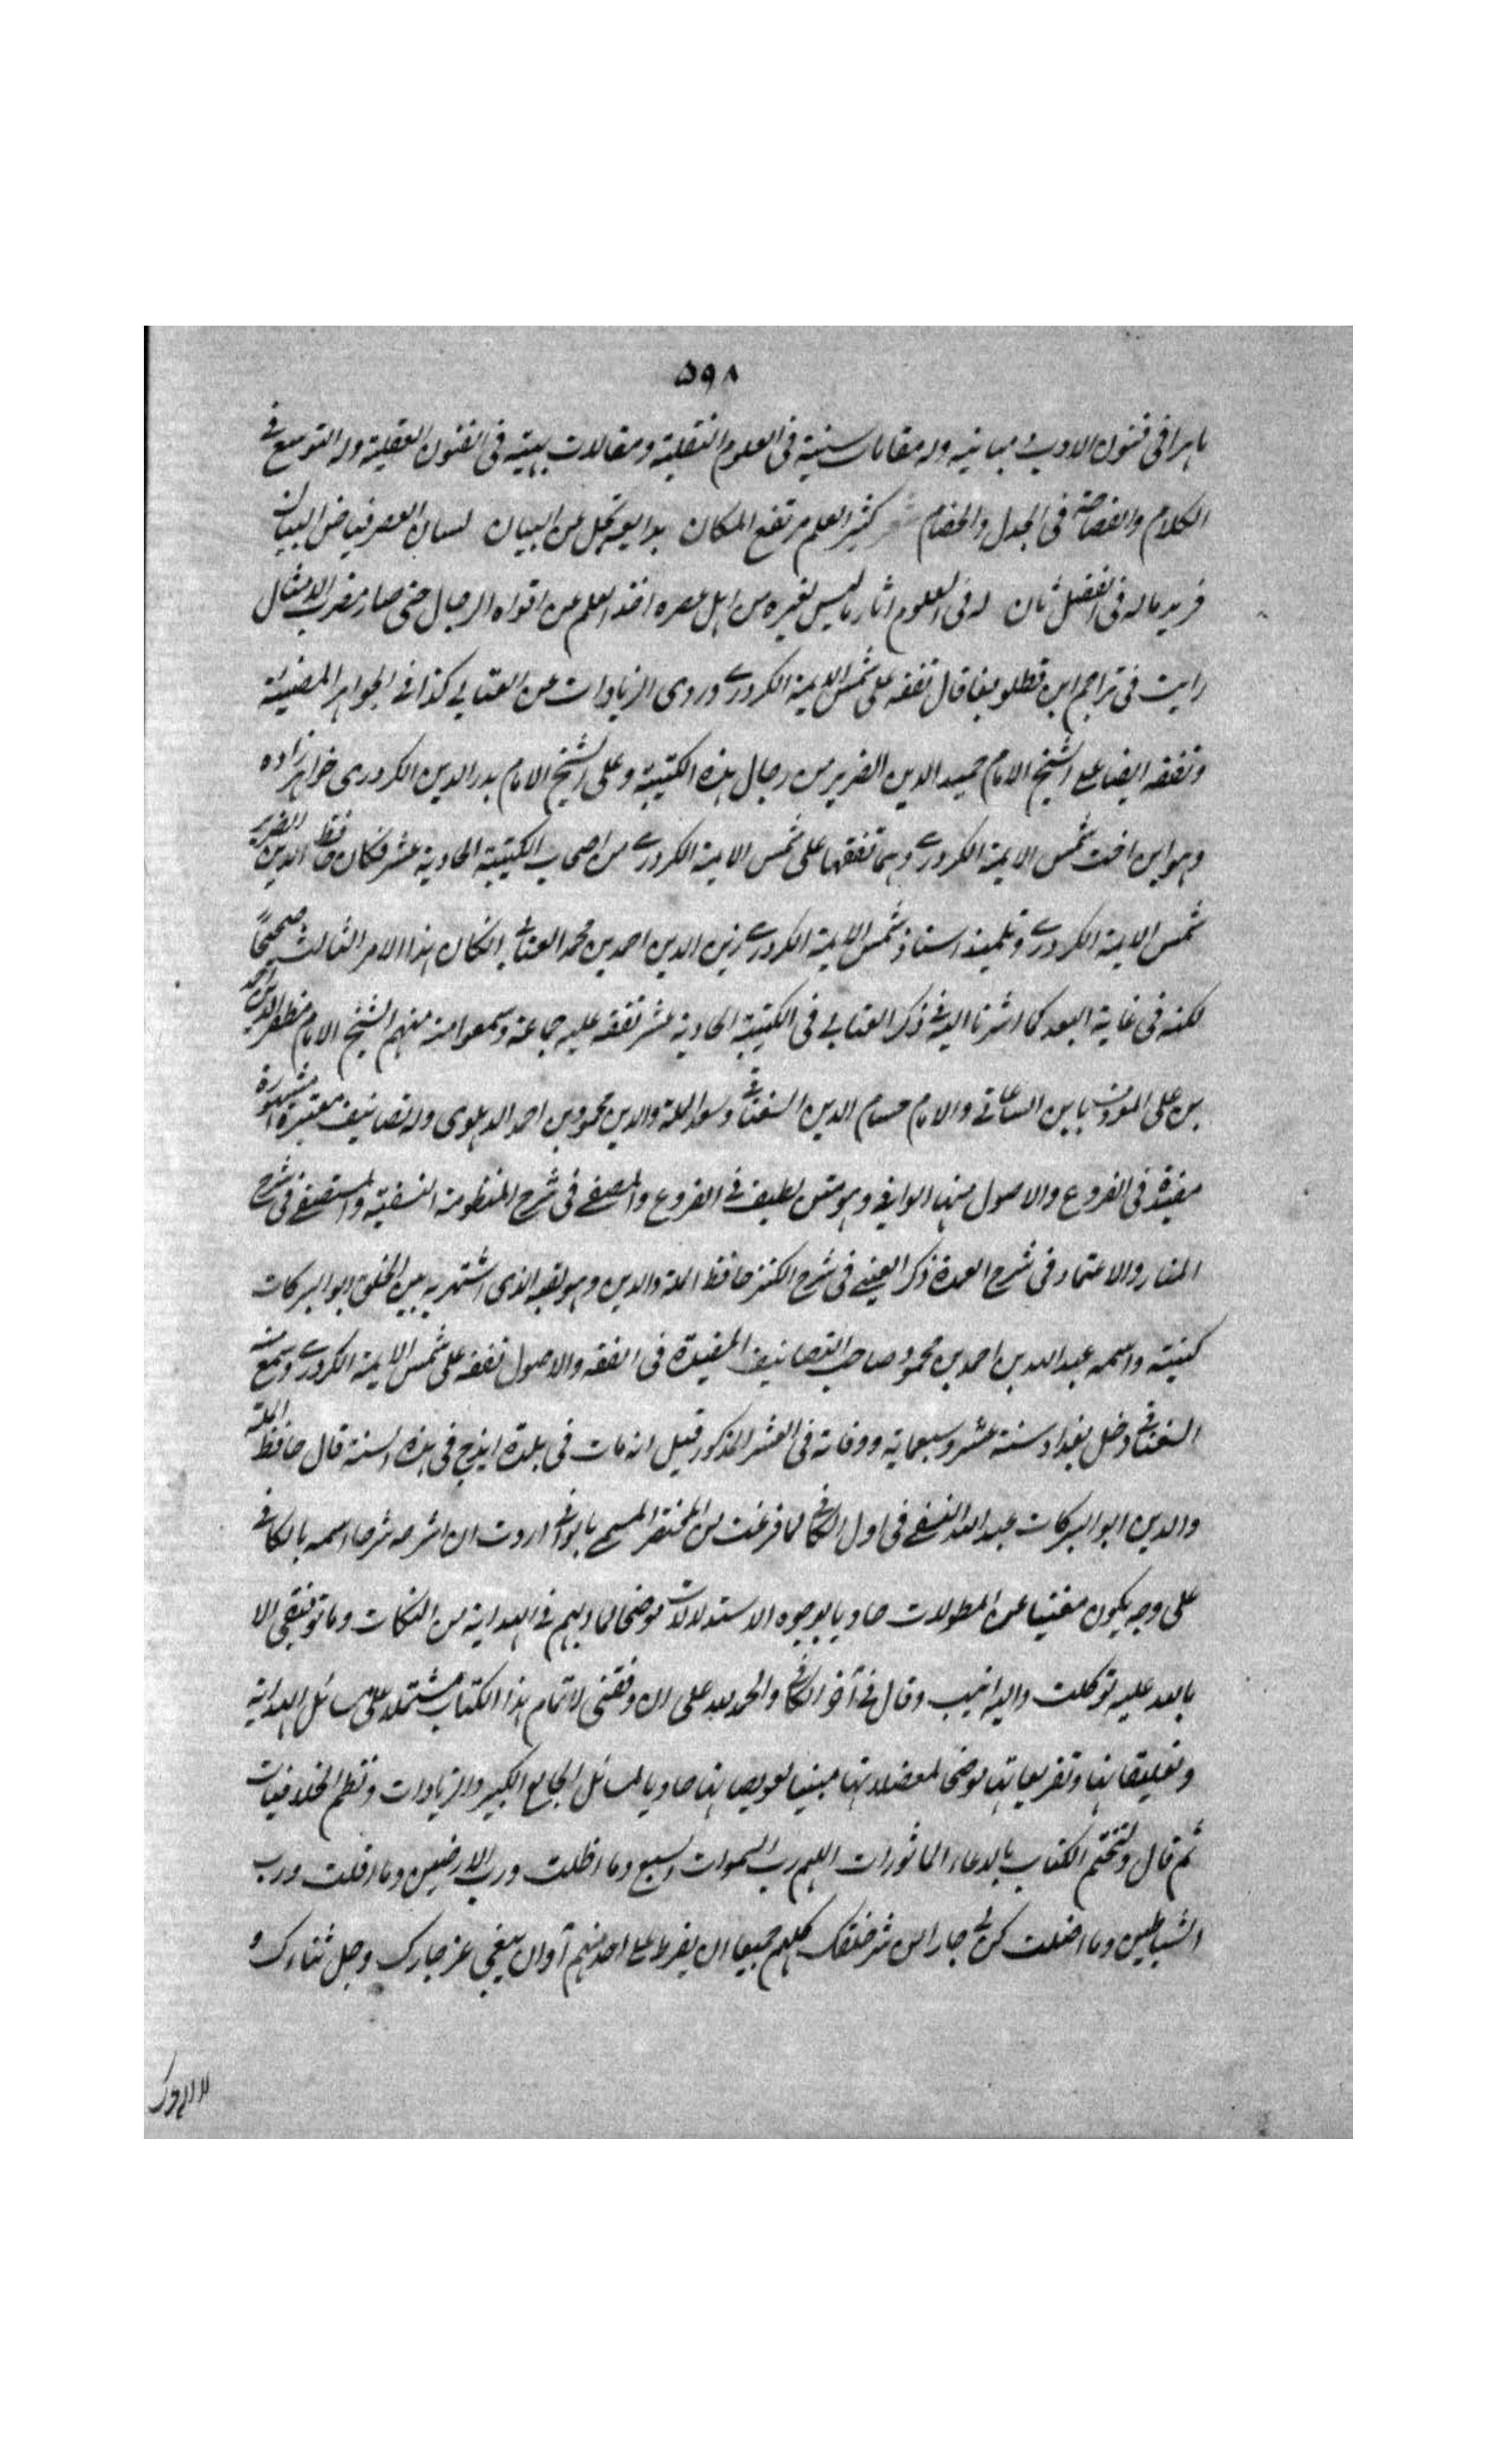 ۵۹۸
ماهرا فی فنون الادب و مبانیه وله مقامات سنیة فی العلوم النقلیة ومقالات بهیة فی الفنون العقلیة وله التوسع فی
الکلام والفصاحة فی الجدل والخصام کثیر العلم مرتفع المکان بدایعه تجل عن البیان لسان العصر فیاض البیان
فرید ماله فی الفضل ثان له فی العلوم اثار ما لیس لغیره من اهل عصره اخذ العلم من افواه الرجال حتی صار مضرب الامثال
رایت فی تراجم ابن قطلوبغا قال تفقه علی شمس الایمة الکردری وروی الزیادات عن العتابی کذا فی الجواهر المضیئة
وتفقه ایضا علی الشیخ الامام حمید الدین الضریر من رجال هذه الکتیبة وعلی الشیخ الامام بدر الدین الکردری خواهر زاده
وهو ابن اخت شمس الایمة الکردری وهما تفقها علی شمس الایمة الکردری من اصحاب الکتیبة الحادیة عشر فکان حافظ الدین الضریر
شمس الایمة الکردری وتلمیذ استاذ شمس الایمة الکردری زین الدین احمد بن محمد العتابی ان کان هذا الامر الثالث صحیحاً
لکنه فی غایة البعد کما اشرنا الیه فی ذکر العتابی فی الکتیبة الحادیة عشر تفقه علیه جماعة وسمعوا منه منهم الشیخ الامام مظفر الدین احمد
بن علی المعروف بابن الساعاتی والامام حسام الدین السغناقی وسعد الملة والدین محمود بن احمد الدهلوی وله تصانیف معتبرة مشهورة
مفیدة فی الفروع والاصول منها الوافی وهو متن لطیف فی الفروع والمصفی فی شرح المنظومة النسفیة والمستصفی فی شرح
المنار والاعتماد فی شرح العمدة ذکر العینی فی شرح الکنز حافظ الملة والدین وهو لقبه الذی اشتهر به بین الخلق ابو البرکات
کنیته واسمه عبد الله بن احمد بن محمود صاحب التصانیف المفیدة فی الفقه والاصول تفقه علی شمس الایمة الکردری وسمع منه
السغناقی دخل بغداد سنة عشر وسبعمایة ووفاته فی العشر المذکور قیل انه مات فی بلدة ایذج فی هذه السنة قال حافظ الملة
والدین ابو البرکات عبد الله النسفی فی اول الکافی لما فرغت من المختصر المسمی بالوافی اردت ان اشرحه شرحا اسمه بالکافی
علی وجه یکون مغنیا عن المطولات حاویا لوجوه الاستدلالات موضحا لما ابهم فی الهدایة من النکات وما توفیقی الا
بالله علیه توکلت والیه انیب وقال فی آخر الکافی والحمد لله علی ان وفقنی لاتمام هذا الکتاب مشتملا علی مسائل الهدایة
وتعلیقاتها وتفریعاتها موضحا لمعضلاتها مبینا لعویصاتها حاویا لمسائل الجامع الکبیر والزیادات ونظم الخلافیات
ثم قال ولنختم الکتاب بالدعاء الماثورات اللهم رب السموات السبع وما اظلت ورب الارضین وما اقلت ورب
الشیاطین وما اضلت کن لی جارا من شر خلقک کلهم جمیعا ان یفرط علی احد منهم أو ان یبغی عز جارک وجل ثناءک و
لا اله غیرک